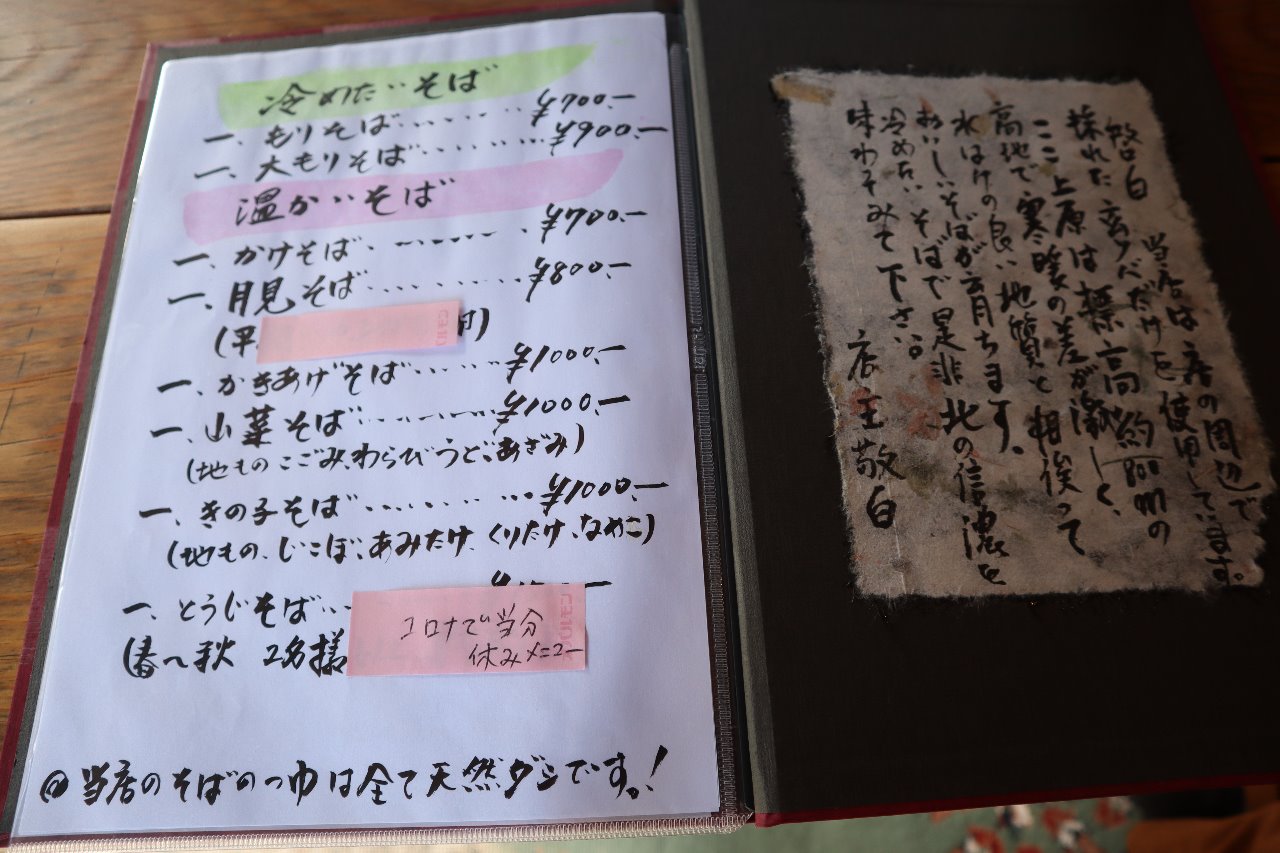 冷めたいそば
一、もりそば……¥700.—
一、大もりそば……¥900.—
温かいそば
一、かけそば……¥700.—
一、月見そば……¥800.—
(早
一、かきあげそば……¥1000.—
一、山菜そば……¥1000.—
(地ものこごみ、わらび、うど、あざみ)
一、きの子そば……¥1000.—
(地もの、じこぼ、あみたけ、くりたけ、なめこ)
一、とうじそば
(春〜秋 2名様
コロナで当分
休みメニュー
◎当店のそばのつゆは全て天然ダシです。!
敬白 当店は店の周辺で
採れた玄ソバだけを使用しています。
ここ上原は標高約800mの
高地で寒暖の差が激しく、
水はけの良い地質と相俟って
おいしいそばが育ちます。
冷めたいそばで是非北の信濃を
味わってみて下さい。
店主敬白